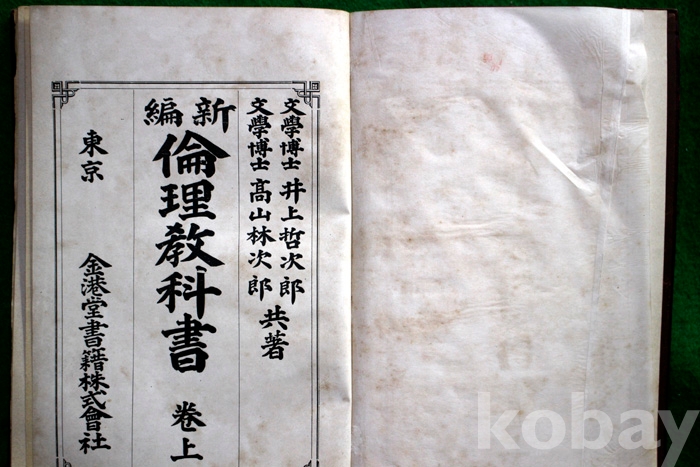 文學博士 井上哲次郎
文學博士 高山林次郎
共著
新編
倫理教科書 卷上
東京 金港堂書籍株式會社
kobay